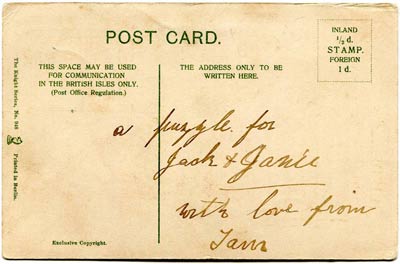 POST CARD.
INLAND
½ d.
STAMP.
FOREIGN
1 d.
THIS SPACE MAY BE USED
FOR COMMUNICATION
IN THE BRITISH ISLES ONLY.
(Post Office Regulation.)
THE ADDRESS ONLY TO BE
WRITTEN HERE.
The Knight Series, No.
Printed in Berlin.
a puzzle for
Jack & Janie
with love from
Exclusive Copyright.